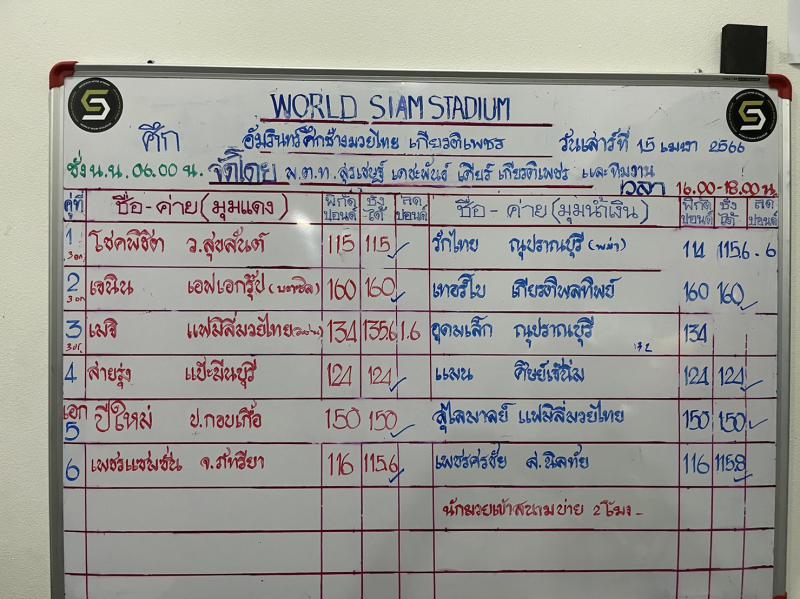 WORLD SIAM STADIUM
ศึก อัมรินทร์ศึกช้างมวยไทย เกียรติเพชร วันเสาร์ที่ 15 เมษา 2566
ชั่ง น.น. 06.00 น. จัดโดย พ.ต.ท. สุรเชษฐ์ เดชะพันธ์ เกียรติเพชร และทีมงาน
เวลา 16.00-18.00 น.
คู่ที่ ชื่อ-ค่าย (มุมแดง) พิกัดปอนด์ ชั่งได้ ลดปอนด์ ชื่อ-ค่าย (มุมน้ำเงิน) พิกัดปอนด์ ชั่งได้ ลดปอนด์
1 3ยก โชคพิชิต ว.สุขสันต์ 115 115 รักไทย ณุปราณบุรี (พม่า) 114 115.6 .6
2 3ยก เจนิน เอฟเอกรุ๊ป (บราซิล) 160 160 เทอร์โบ เกียรติพลทิพย์ 160 160
3 3ยก เมริ แฟมิลี่มวยไทย 134 135.6 1.6 อุดมเล็ก ณุปราณบุรี 134
4 สายรุ้ง แป๊ะมีนบุรี 124 124 แมน ศิษย์เจ๊นิ่ม 124 124
เอก 5 ปีใหม่ ป.กอบเกื้อ 150 150 สุไลมาลย์ แฟมิลี่มวยไทย 150 150
6 เพชรแชมชั่น จ.ภัทรียา 116 115.6 เพชรศรชัย ส.นิลทัย 116 115.8
นักมวยเข้าสนามบ่าย 2โมง